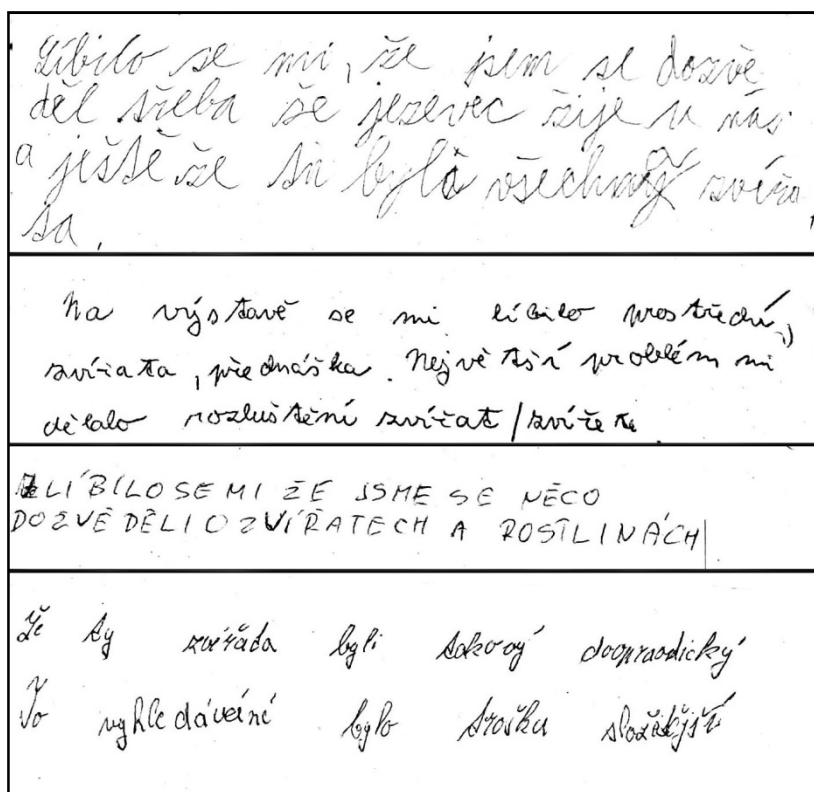 Líbilo se mi, že jsem se dozvě
děl třeba že jezevec žije u nás
a ještě že tu byla všechna zvířa
ta.
Na výstavě se mi líbilo prostředí,
zvířata, přednáška. Největší problém mi
dělalo rozluštění zvířat/zvířete.
LÍBILO SE MI ŽE JSME SE NĚCO
DOZVĚDĚLI O ZVÍŘATECH A ROSTLINÁCH
Že ty zvířada byli takový doopravdický
To vyhledávání bylo trošku složitější